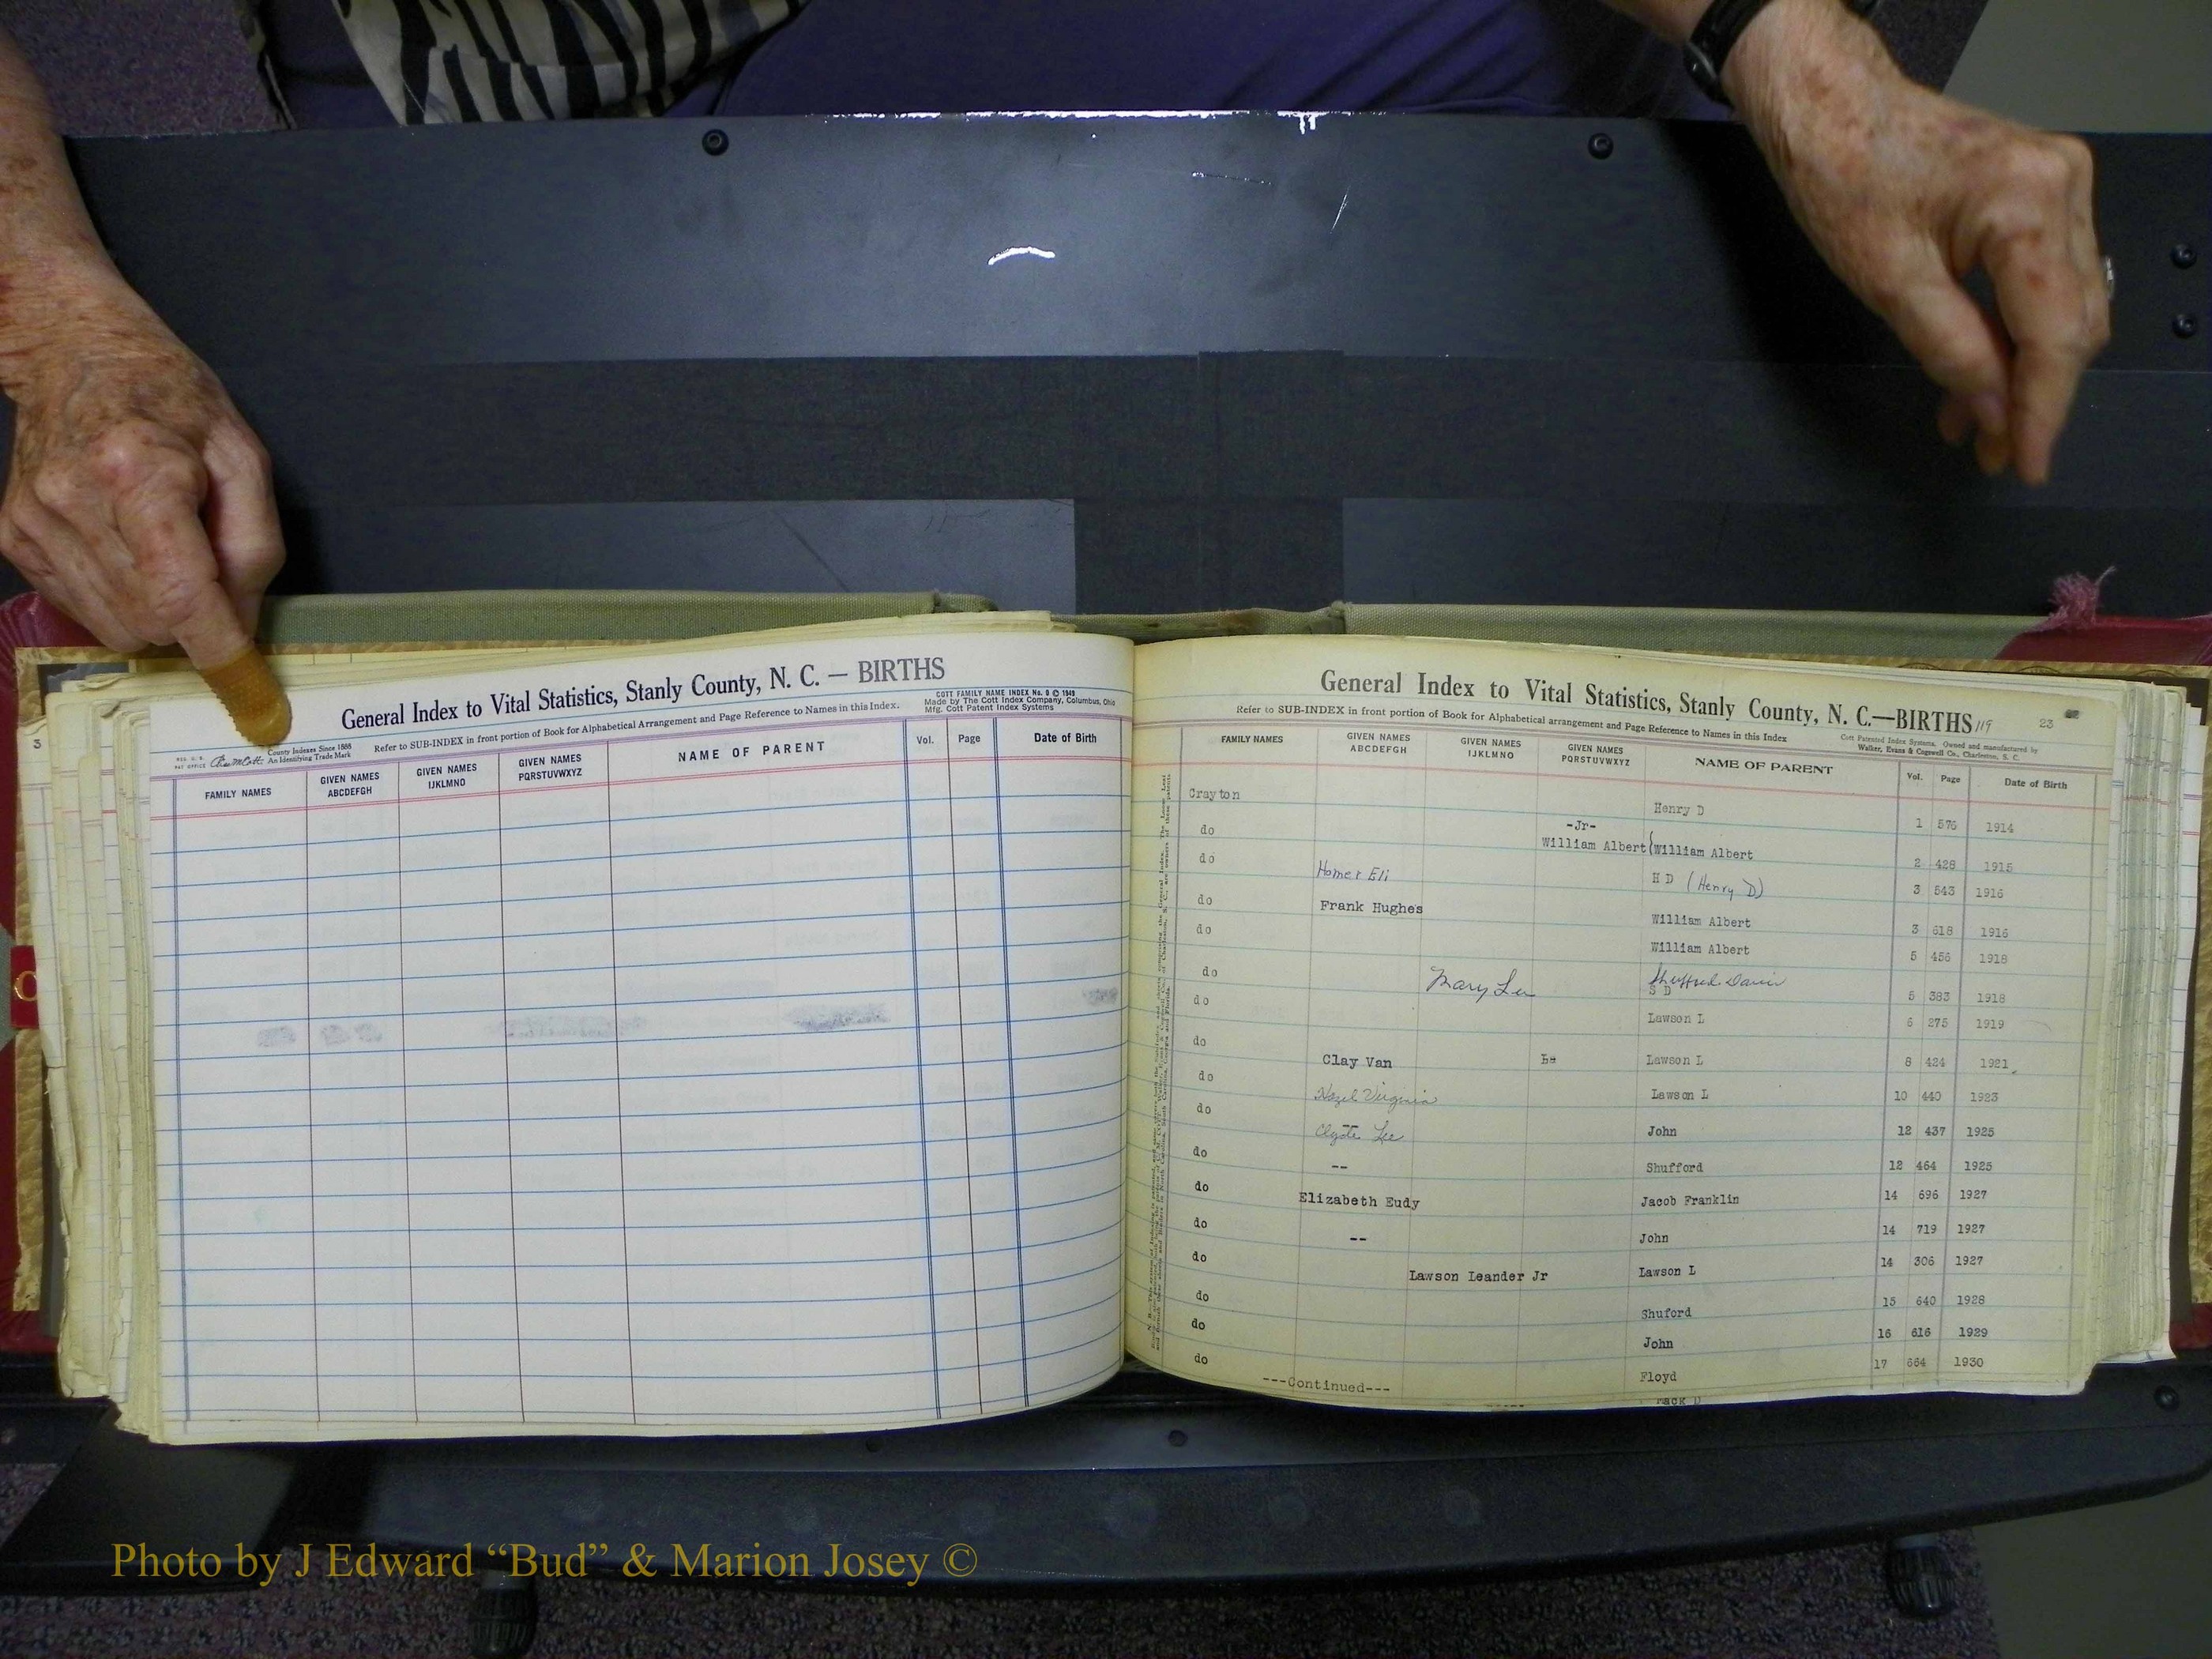 General Index to Vital Statistics, Stanly County, N. C. — BIRTHS
COTT FAMILY NAME INDEX No. 9 © 1949
Made by The Cott Index Company, Columbus, Ohio
Mfg. Cott Patent Index Systems
County Indexes Since 1888
An Identifying Trade Mark
Refer to SUB-INDEX in front portion of Book for Alphabetical Arrangement and Page Reference to Names in this Index.
FAMILY NAMES GIVEN NAMES ABCDEFGH GIVEN NAMES IJKLMNO GIVEN NAMES PQRSTUVWXYZ NAME OF PARENT Vol. Page Date of Birth
General Index to Vital Statistics, Stanly County, N. C.—BIRTHS 119 23
Refer to SUB-INDEX in front portion of Book for Alphabetical arrangement and Page Reference to Names in this Index
Cott Patented Index Systems. Owned and manufactured by
Walker, Evans & Cogswell Co., Charleston, S. C.
FAMILY NAMES GIVEN NAMES ABCDEFGH GIVEN NAMES IJKLMNO GIVEN NAMES PQRSTUVWXYZ NAME OF PARENT Vol. Page Date of Birth
Crayton Henry D 1 576 1914
do -Jr- William Albert (William Albert 2 428 1915
do Homer Eli H D (Henry D) 3 543 1916
do Frank Hughes William Albert 3 618 1916
do William Albert 5 456 1918
do Mary Lee S D 5 383 1918
do Lawson L 6 275 1919
do Clay Van Lawson L 8 424 1921
do Hazel Virginia Lawson L 10 440 1923
do Clyde Lee John 12 437 1925
do -- Shufford 12 464 1925
do Elizabeth Eudy Jacob Franklin 14 696 1927
do -- John 14 719 1927
do Lawson Leander Jr Lawson L 14 306 1927
do Shuford 15 640 1928
do John 16 616 1929
do Floyd 17 664 1930
---Continued---
Photo by J Edward “Bud” & Marion Josey ©